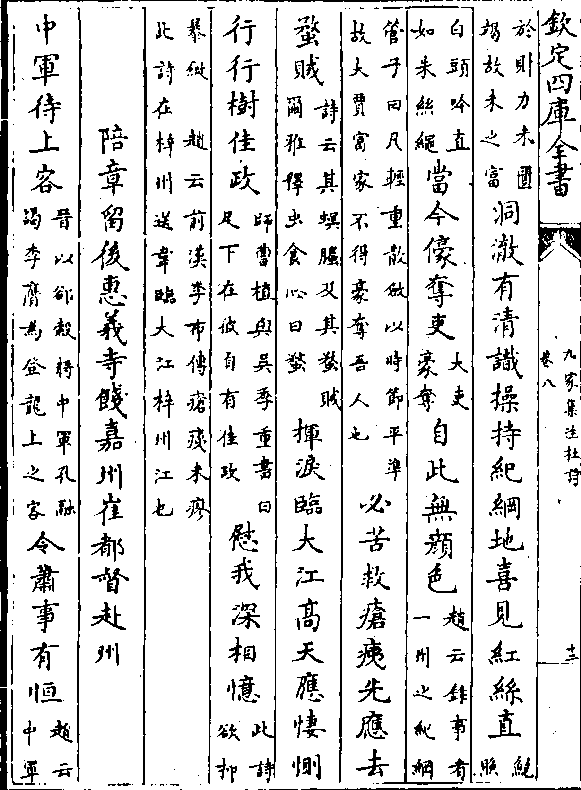 欽定四庫全書
九家集注杜詩
卷八
於則力未匱
竭故未之富
洞澈有清識操持紀綱地喜見紅絲直
鮑
照
白頭吟直
如朱絲繩
當今儫奪吏
大吏
豪奪
自此無顔色
趙云錄事者
一州之紀綱
管子曰凡輕重散斂以時節平準
故大賈富家不得豪奪吾人也
必苦救瘡痍先應去
蟊賊
詩云其螟螣及其蟊賊
爾雅釋虫食心曰蟊
揮淚臨大江高天應悽惻
行行樹佳政
師曹植與吳季重書曰
足下在彼自有佳政
慰我深相憶
此詩
欲抑
暴縱 趙云前漢季布傳瘡痍未瘳
此詩在梓州送韋臨大江梓州江也
陪章留後惠義寺餞嘉州崔都督赴州
中軍待上客
晉以郤縠將中軍孔融
謁李膺為登龍上之客
令肅事有恒
趙云
中軍